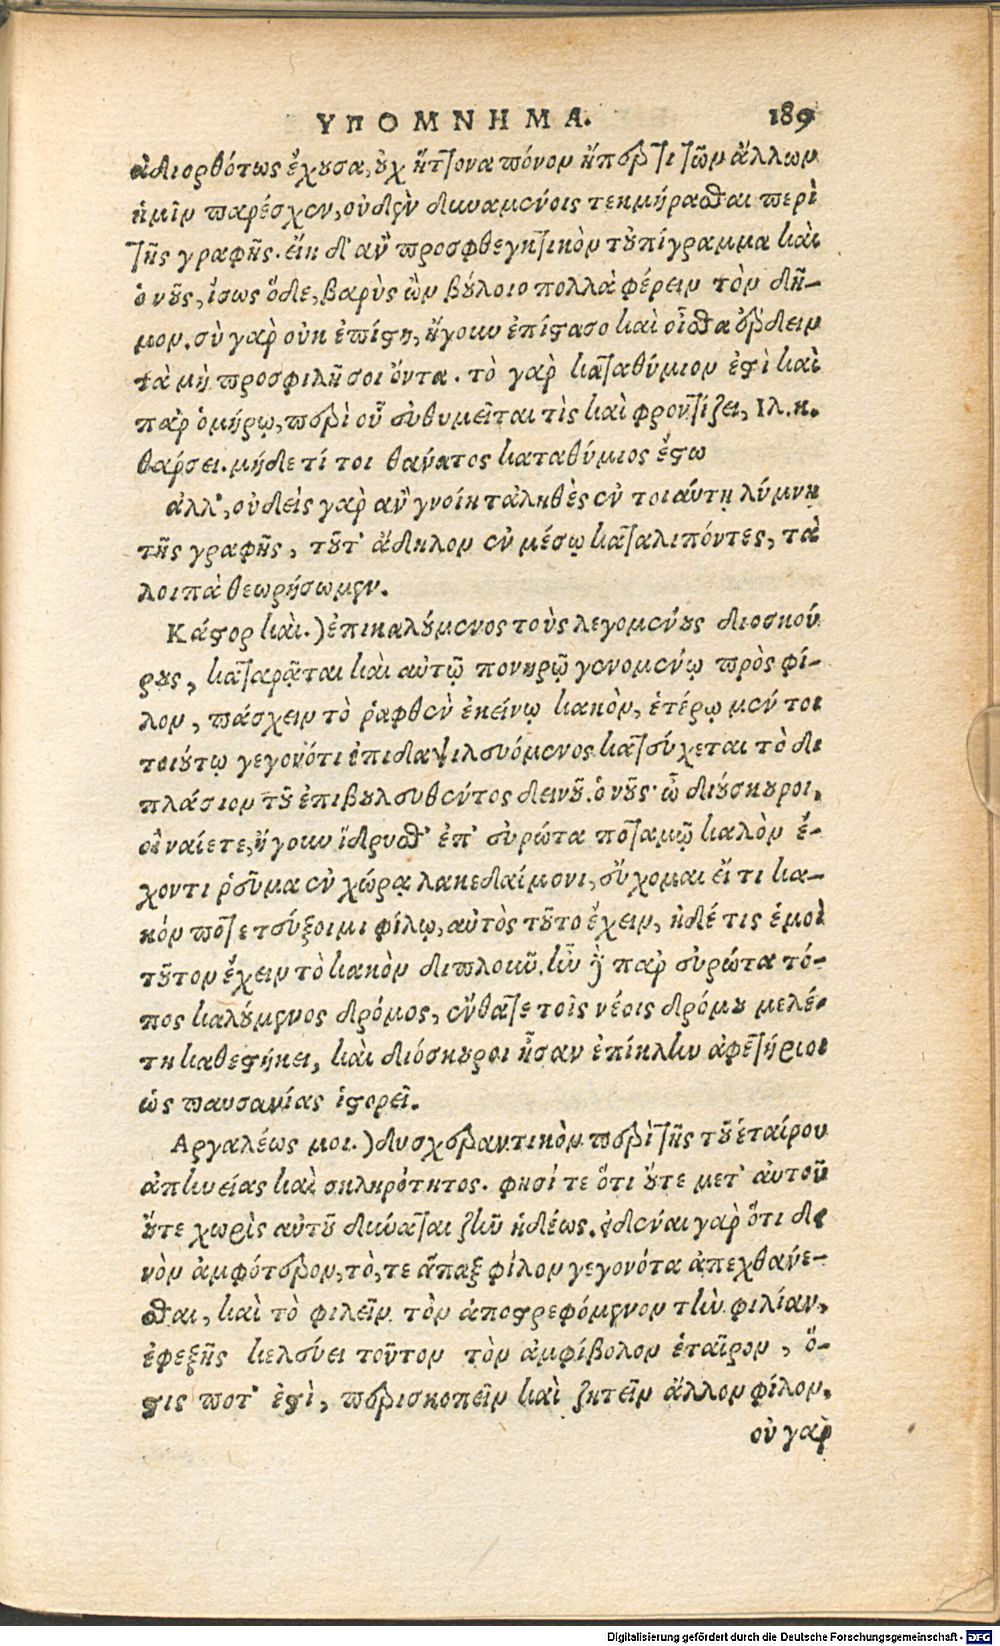 ΥΠΟΜΝΗΜΑ. 189
ἀδιορθότως ἔχουσα, οὐχ ἥττονα πόνον ἤπερ τι τῶν ἄλλων
ἡμῖν παρέσχεν, οὐδὲν δυναμένοις τεκμήρασθαι περὶ
τῆς γραφῆς. εἴη δ' ἂν προσφθεγκτικὸν τοὐπίγραμμα καὶ
ὁ νοῦς, ἴσως ὅδε, βαρὺς ὢν βούλοιο πολλὰ φέρειν τὸν δῆ-
μον. σὺ γὰρ οὐκ ἐπίστῃ, ἤγουν ἐπίστασο καὶ οἶσθα ἔρδειν
τὰ μὴ προσφιλῆ σοι ὄντα. τὸ γὰρ καταθύμιον ἐστὶ καὶ
παρ' ὁμήρῳ, περὶ οὗ ἐνθυμεῖται τὶς καὶ φροντίζει, Ιλ. κ.
θάρσει. μήδε τί τοι θάνατος καταθύμιος ἔστω
ἀλλ', οὐδεὶς γὰρ ἂν γνοίη τἀληθὲς ἐν τοιαύτῃ λύμνῃ
τῆς γραφῆς, τοῦτ' ἄδηλον ἐν μέσῳ καταλιπόντες, τὰ
λοιπὰ θεωρήσωμεν.
Κάστορ καὶ.) ἐπικαλούμενος τοὺς λεγομένους διοσκού
ρους, καταρᾶται καὶ αὐτῷ πονηρῷ γενομένῳ πρὸς φί-
λον, πάσχειν τὸ ῥαφθὲν ἐκείνῳ κακὸν, ἑτέρῳ μέν τοι
τοιούτῳ γεγονότι ἐπιδαψιλευόμενος κατεύχεται τὸ δι
πλάσιον τοῦ ἐπιβουλευθέντος δεινοῦ. ὁ νοῦς· ὦ διούσκουροι,
οἳ ναίετε, ἤγουν ἵδρυσθ' ἐπ' εὐρώτα ποταμῷ καλὸν ἔ-
χοντι ῥεῦμα ἐν χώρᾳ λακεδαίμονι, εὔχομαι εἴ τι κα-
κόν ποτε τεύξοιμι φίλῳ, αὐτὸς τοῦτο ἔχειν, ἠδέ τις ἐμοὶ
τοῦτον ἔχειν τὸ κακὸν διπλοῦν. ἦν γὰρ παρ' εὐρώτα τό-
πος καλούμενος δρόμος, ἔνθατε τοῖς νέοις δρόμου μελέ-
τη καθεστήκει, καὶ διόσκουροι ἦσαν ἐπίκλην ἀφετήριοι
ὡς παυσανίας ἱστορεῖ.
Αργαλέως μοι.) δυσχεραντικὸν περὶ τῆς τοῦ ἑταίρου
ἀπηνείας καὶ σκληρότητος. φησί τε ὅτι οὔτε μετ' αὐτοῦ
οὔτε χωρὶς αὐτοῦ δύναται ζῆν ἡδέως. εἰδέναι γὰρ ὅτι δει
νὸν ἀμφότερον, τὸ, τε ἅπαξ φίλον γεγονότα ἀπεχθάνε-
σθαι, καὶ τὸ φιλεῖν τὸν ἀποστρεφόμενον τὴν φιλίαν,
ἐφεξῆς κελεύει τοῦτον τὸν ἀμφίβολον ἑταῖρον, ὅ-
στις ποτ' ἐστὶ, περισκοπεῖν καὶ ζητεῖν ἄλλον φίλον.
οὐ γὰρ
Digitalisierung gefördert durch die Deutsche Forschungsgemeinschaft - DFG